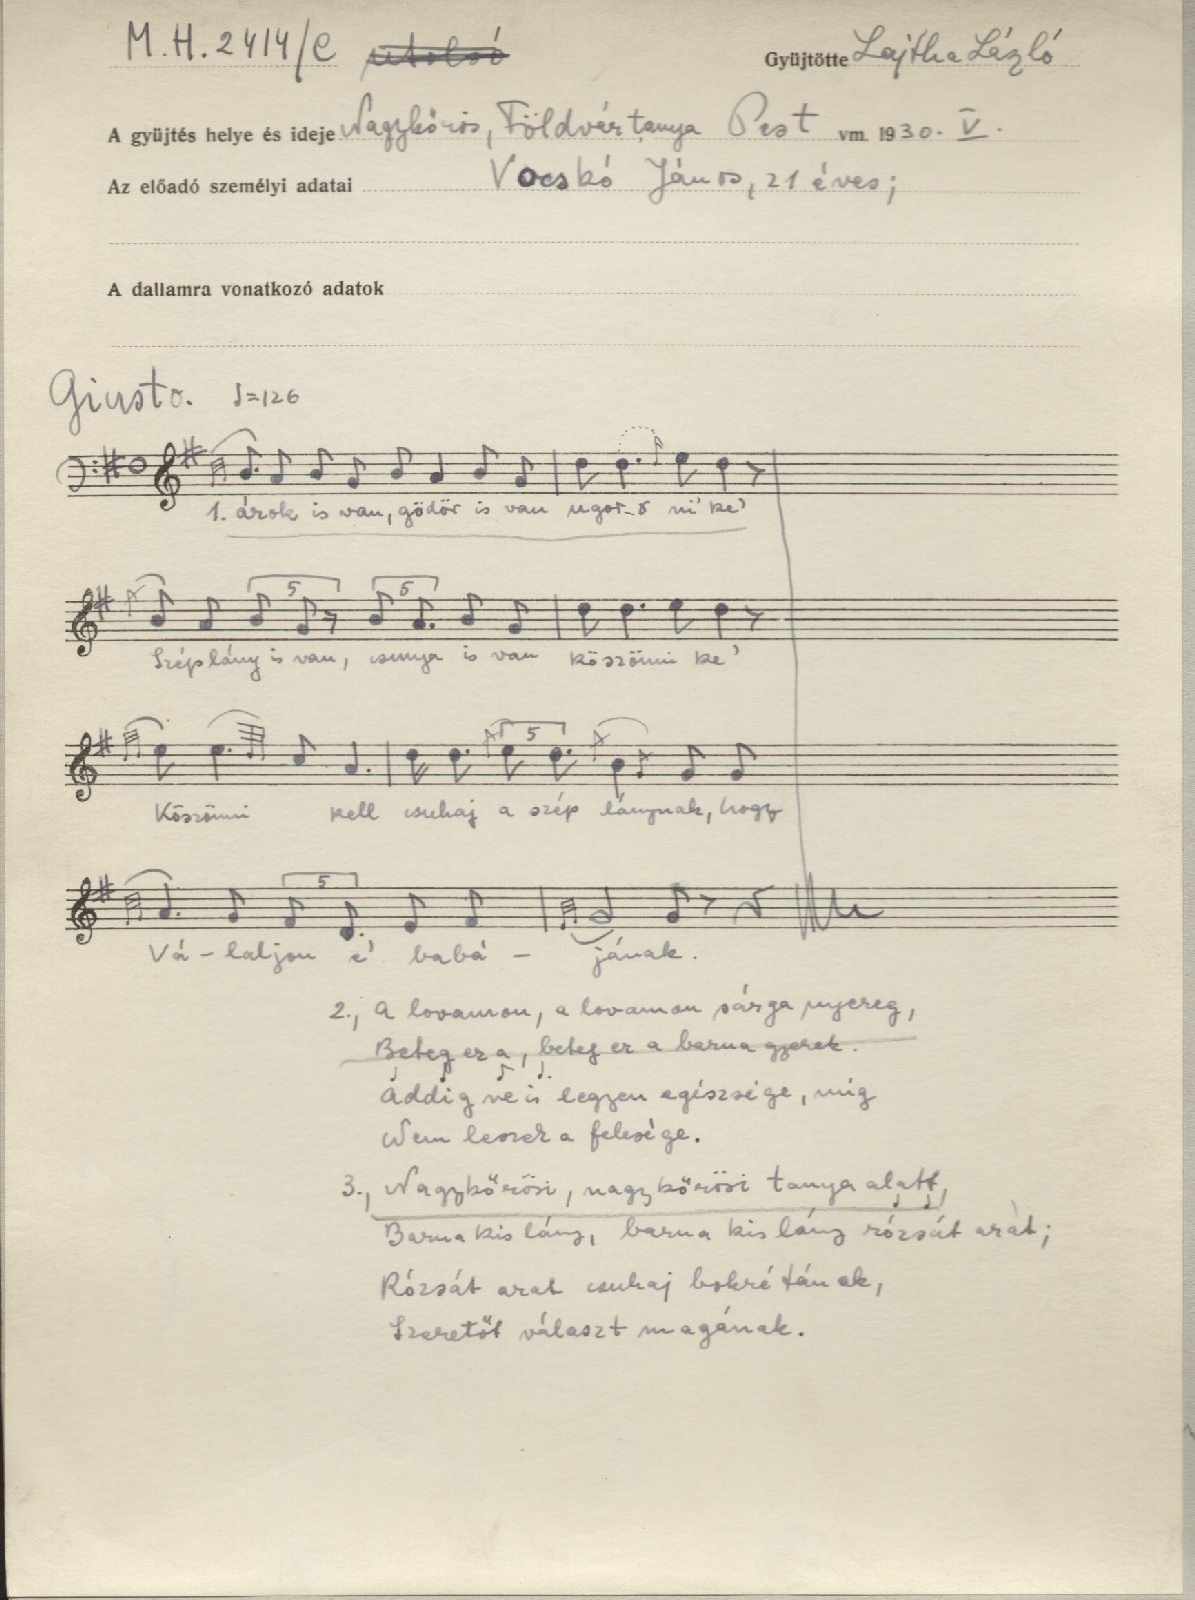 M.H. 2414/c utolsó Gyüjtötte Lajtha László
A gyüjtés helye és ideje Nagykőrös, Földvár tanya Pest vm. 1930. V.
Az előadó személyi adatai Vocskó János, 21 éves;
A dallamra vonatkozó adatok
Giusto. ♩=126
1. árok is van, gödör is van ugor-ó ni ke'
Szép lány is van, csunya is van köszönni ke'
5 5
Köszönni kell csuhaj a szép lánynak, hogy
5
Vá-laljon é' babá - jának.
5
2., A lovamon, a lovamon sárga nyereg,
Beteg ez a, beteg ez a barna gyerek.
Áddig ne is legyen egészsége, míg
Nem leszek a felesége.
3., Nagykőrösi, nagykőrösi tanya alatt,
Barna kis lány, barna kis lány rózsát arat;
Rózsát arat csuhaj bokrétának,
Szeretőt választ magának.